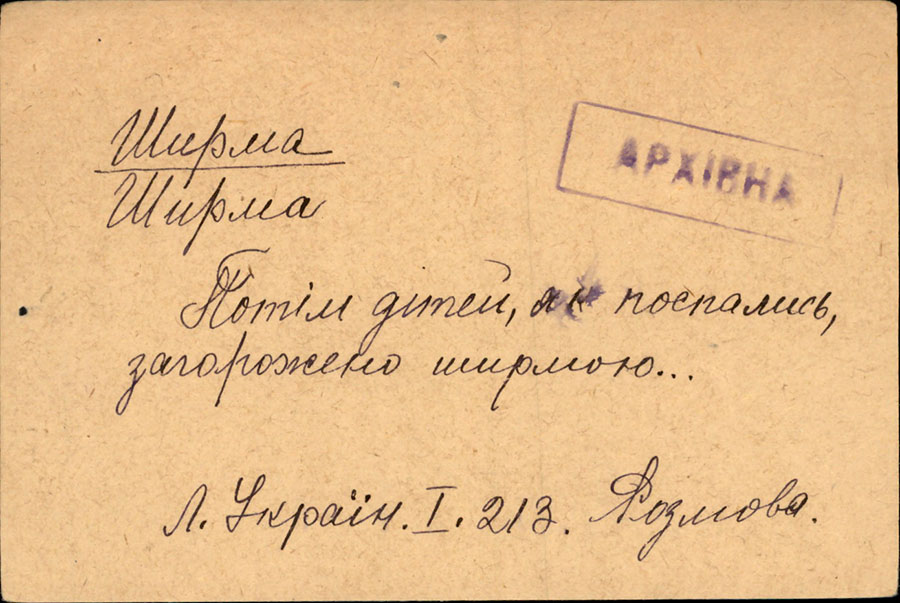 Ширма
АРХІВНА
Ширма
Потім дітей, як поспались,
загорожено ширмою...
Л. Україн. І. 213. Розмова.